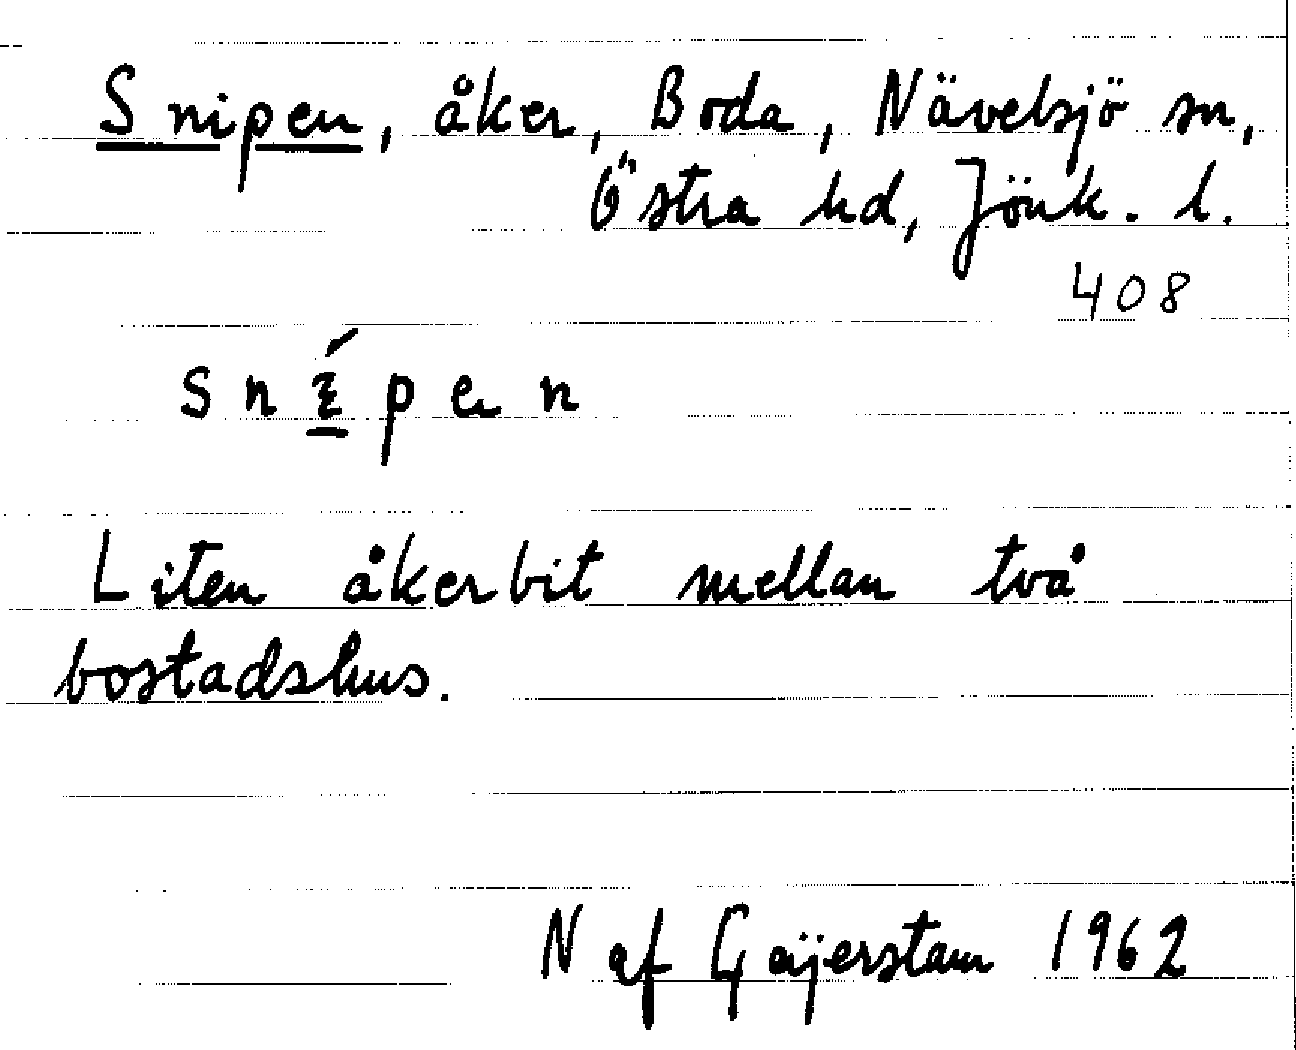 Snipen, åker, Boda, Nävelsjö sn,
Östra hd, Jönk. l.
408
snɛ̱́pen
Liten åkerbit mellan två
bostadshus.
N af Geijerstam 1962